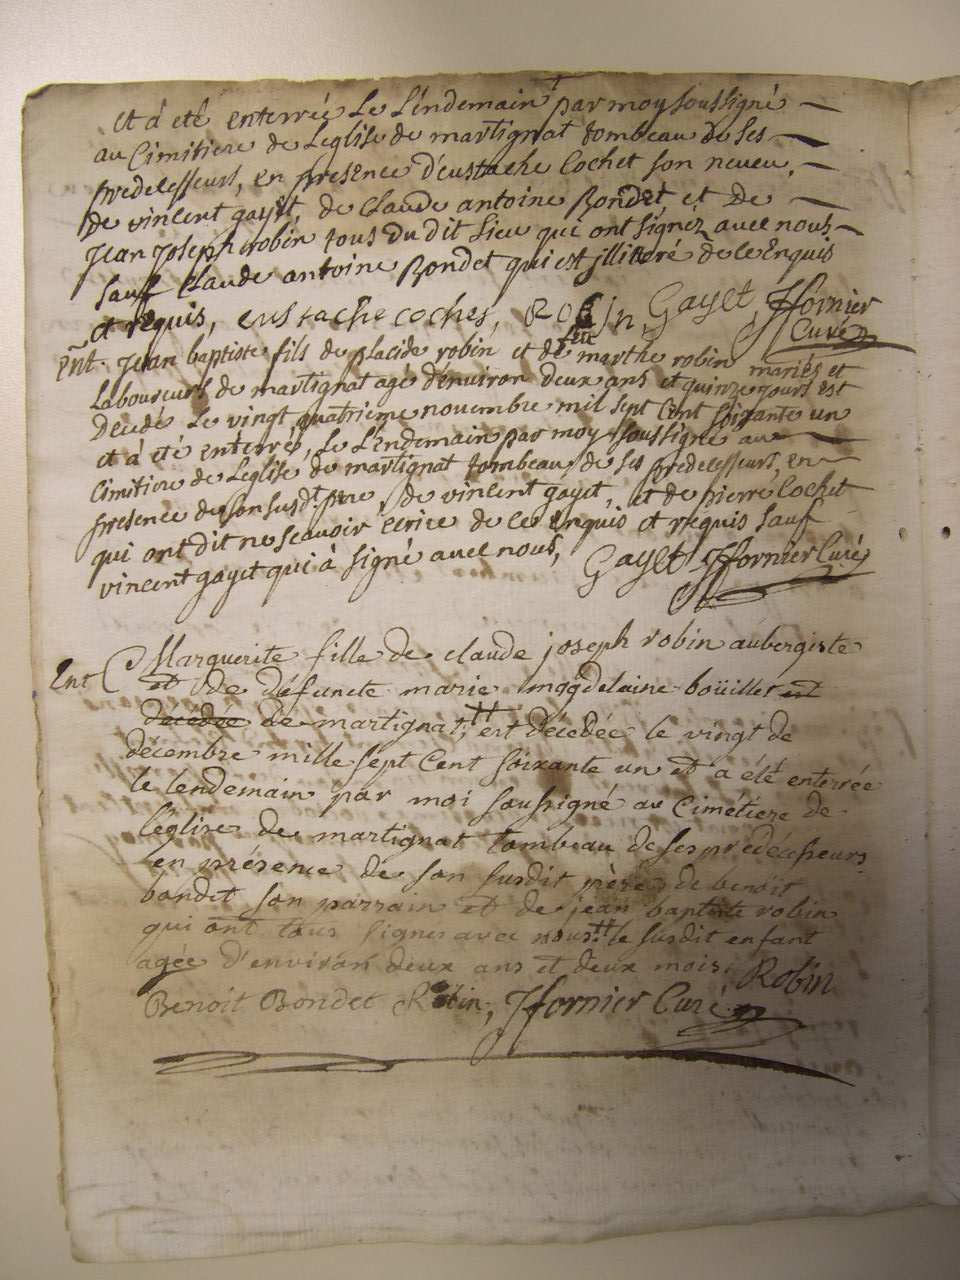 et à eté enterrée Le Lendemain par moy soussigné
au Cimitiere de Leglise de martignat tombeau de ses
predecesseurs, en presence d'eustache Cochet son neveu,
de vincent gayet, de Claude antoine Bondet et De
Jean Joseph robin tous du dit Lieu qui ont signez avec nous
sauf Claude antoine Bondet qui est jllitéré de ce Enquis
et requis, eustache coches, ROBJn, Gayet, Jfornier
Curé
Ent. Jean baptiste fils de placide robin et de marthe robin mariés et
Laboureurs de martignat agé d'environ deux ans et quinze jours est
Decedé Le vingt quatrieme novembre mil sept Cent soixante un
et à été enterré, Le Lendemain par moy soussigné au
Cimitiere de Leglise de martignat tombeau de ses predecesseurs, en
presence de son susd.t pere, de vincent gayet, et de pierre Cochet
qui ont dit ne scavoir ecrire de ce enquis et requis sauf
vincent gayet qui à signé avec nous, Gayet Jfornier Curé
Ent Marguerite fille de claude joseph robin aubergiste
et de défuncte marie magdelaine boüillet est
décédée de martignat, est décédée le vingt de
décembre mille sept Cent soixante un et a été enterrée
le lendemain par moi soussigné au Cimétiere de
l'église de martignat tombeau de ses prédécesseurs
en présence de son susdit père, de benoit
bondet son parrain et de jean baptiste robin
qui ont tous signes avec nous. le susdit enfant
agée d'environ deux ans et deux mois. Robin
Benoit Bondet Robin, Jfornier Curé